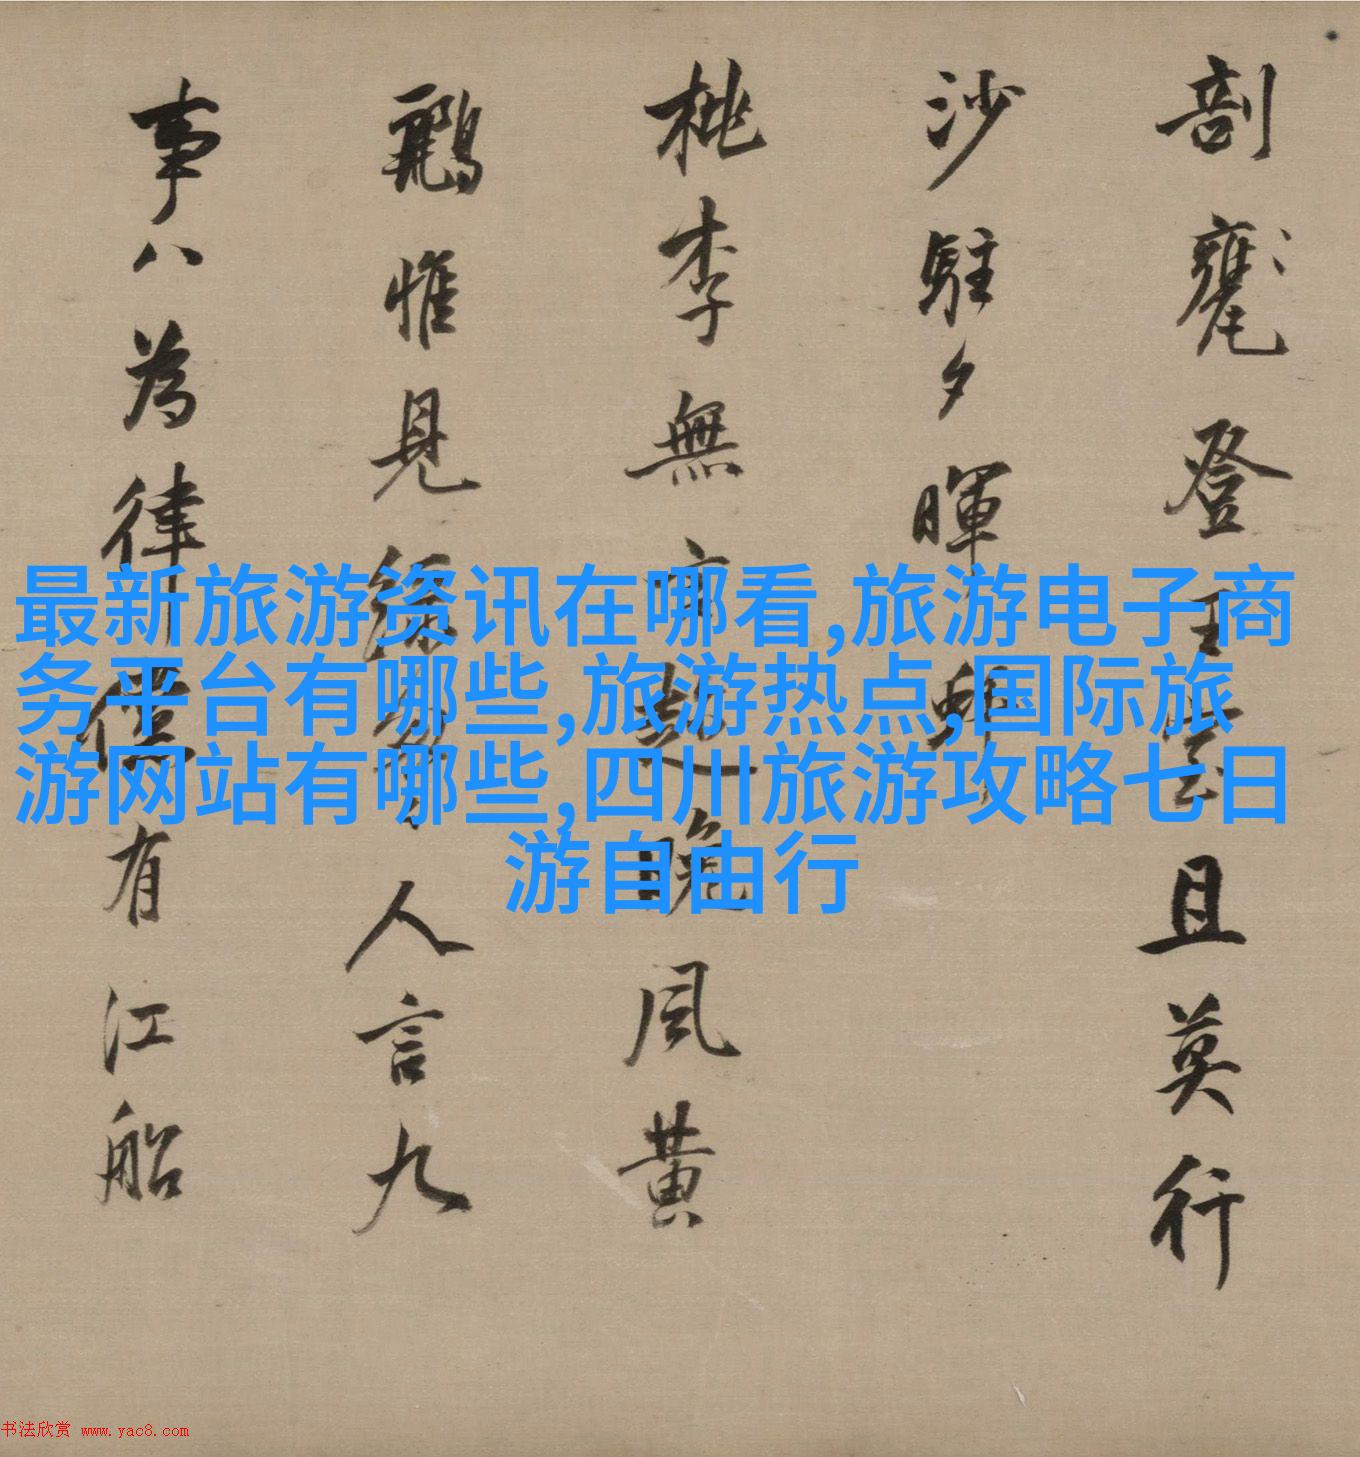 剖甕登且莫行
沙駐夕暉
桃李無晚風黃
鸝惟見綠人言九
事八為律僅有江船
最新旅游资讯在哪看,旅游电子商
务平台有哪些,旅游热点,国际旅
游网站有哪些,四川旅游攻略七日
游自由行
书法欣赏 www.yac8.com